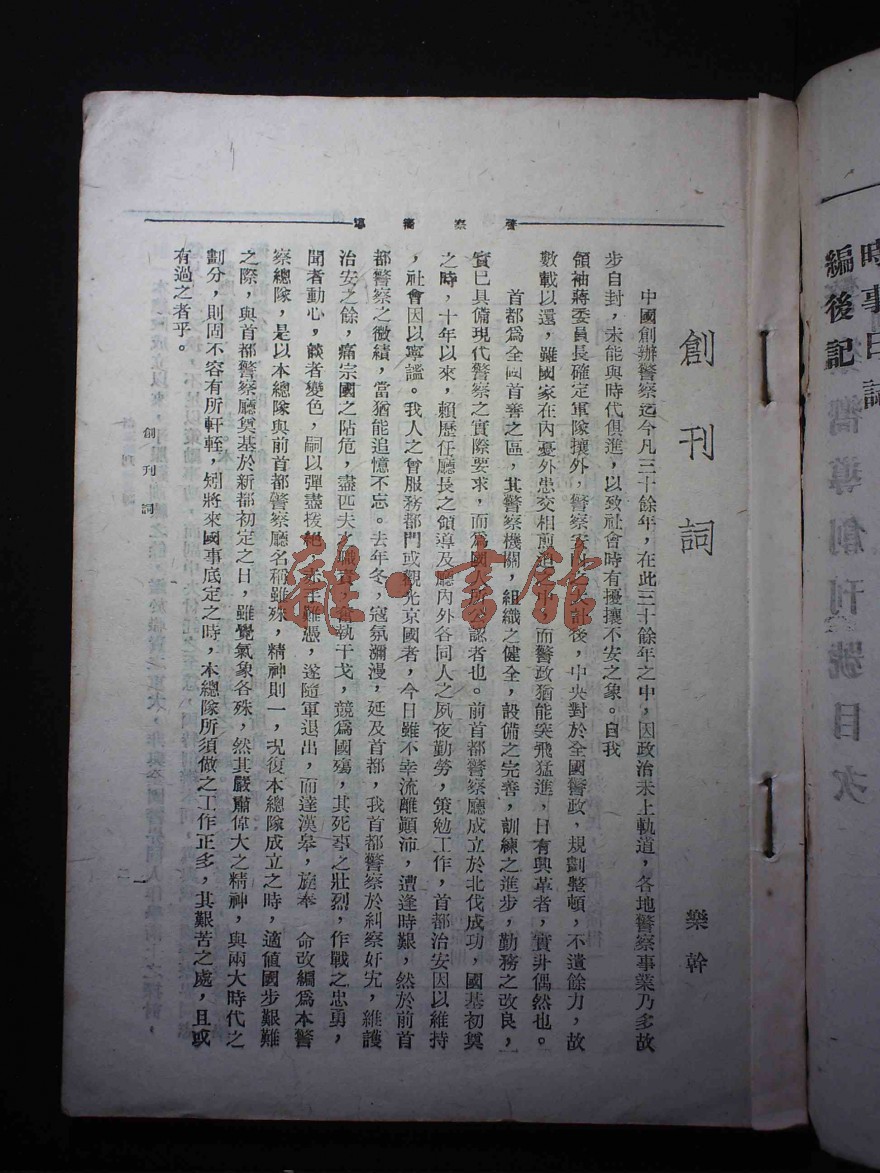 警察嚮導
創刊詞
樂幹
中國創辦警察迄今凡三十餘年，在此三十餘年之中，因政治未上軌道，各地警察事業乃多故
步自封，未能與時代俱進，以致社會時有擾攘不安之象。自我
領袖蔣委員長確定軍隊攘外，警察安內之大計後，中央對於全國警政，規劃整頓，不遺餘力，故
數載以還，雖國家在內憂外患交相煎迫之中，而警政猶能突飛猛進，日有興革者，實非偶然也。
首都為全國首善之區，其警察機關，組織之健全，設備之完善，訓練之進步，勤務之改良，
實已具備現代警察之實際要求，而為國人所公認者也。前首都警察廳成立於北伐成功，國基初奠
之時，十年以來，賴歷任廳長之領導及廳內外各同人之夙夜勤勞，策勉工作，首都治安因以維持
，社會因以寧謐。我人之曾服務都門或觀光京國者，今日雖不幸流離顚沛，遭逢時艱，然於前首
都警察之微績，當猶能追憶不忘。去年冬，寇氛瀰漫，延及首都，我首都警察於糾察奸宄，維護
治安之餘，痛宗國之阽危，盡匹夫之職責，奮執干戈，競為國殤，其死事之壯烈，作戰之忠勇，
聞者動心，談者變色，嗣以彈盡援絕，赤手難憑，遂隨軍退出，而達漢皋，旋奉　命改編為本警
察總隊，是以本總隊與前首都警察廳名稱雖殊，精神則一，况復本總隊成立之時，適值國步艱難
之際，與首都警察廳奠基於新都初定之日，雖覺氣象各殊，然其嚴肅偉大之精神，與兩大時代之
劃分，則固不容有所軒輊，矧將來國事底定之時，本總隊所須做之工作正多，其艱苦之處，且或
有過之者乎。
創刊詞
一
時事日誌
編後記
嚮導創刊號目次
雜·書館